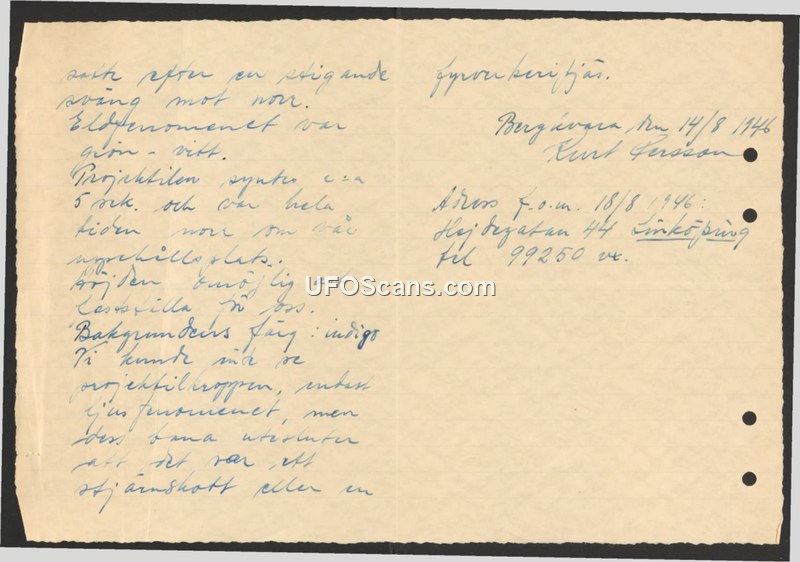 satte efter en stigande
sväng mot norr.
Eldfenomenet var
grön-vitt.
Projektilen syntes c:a
5 sek. och var hela
tiden norr om vår
uppehållsplats.
Höjden omöjlig att
fastställa för oss.
Bakgrundens färg: indigo
Vi kunde inte se
projektilkroppen, endast
ljusfenomenet, men
dess bana utesluter
att det var ett
stjärnskott eller en
fyrverkeripjäs.
Bergkvara den 14/8 1946
Kurt Persson
Adress f.o.m. 18/8 1946:
Hejdegatan 44 Linköping
tel 99250 vx.
UFOScans.com